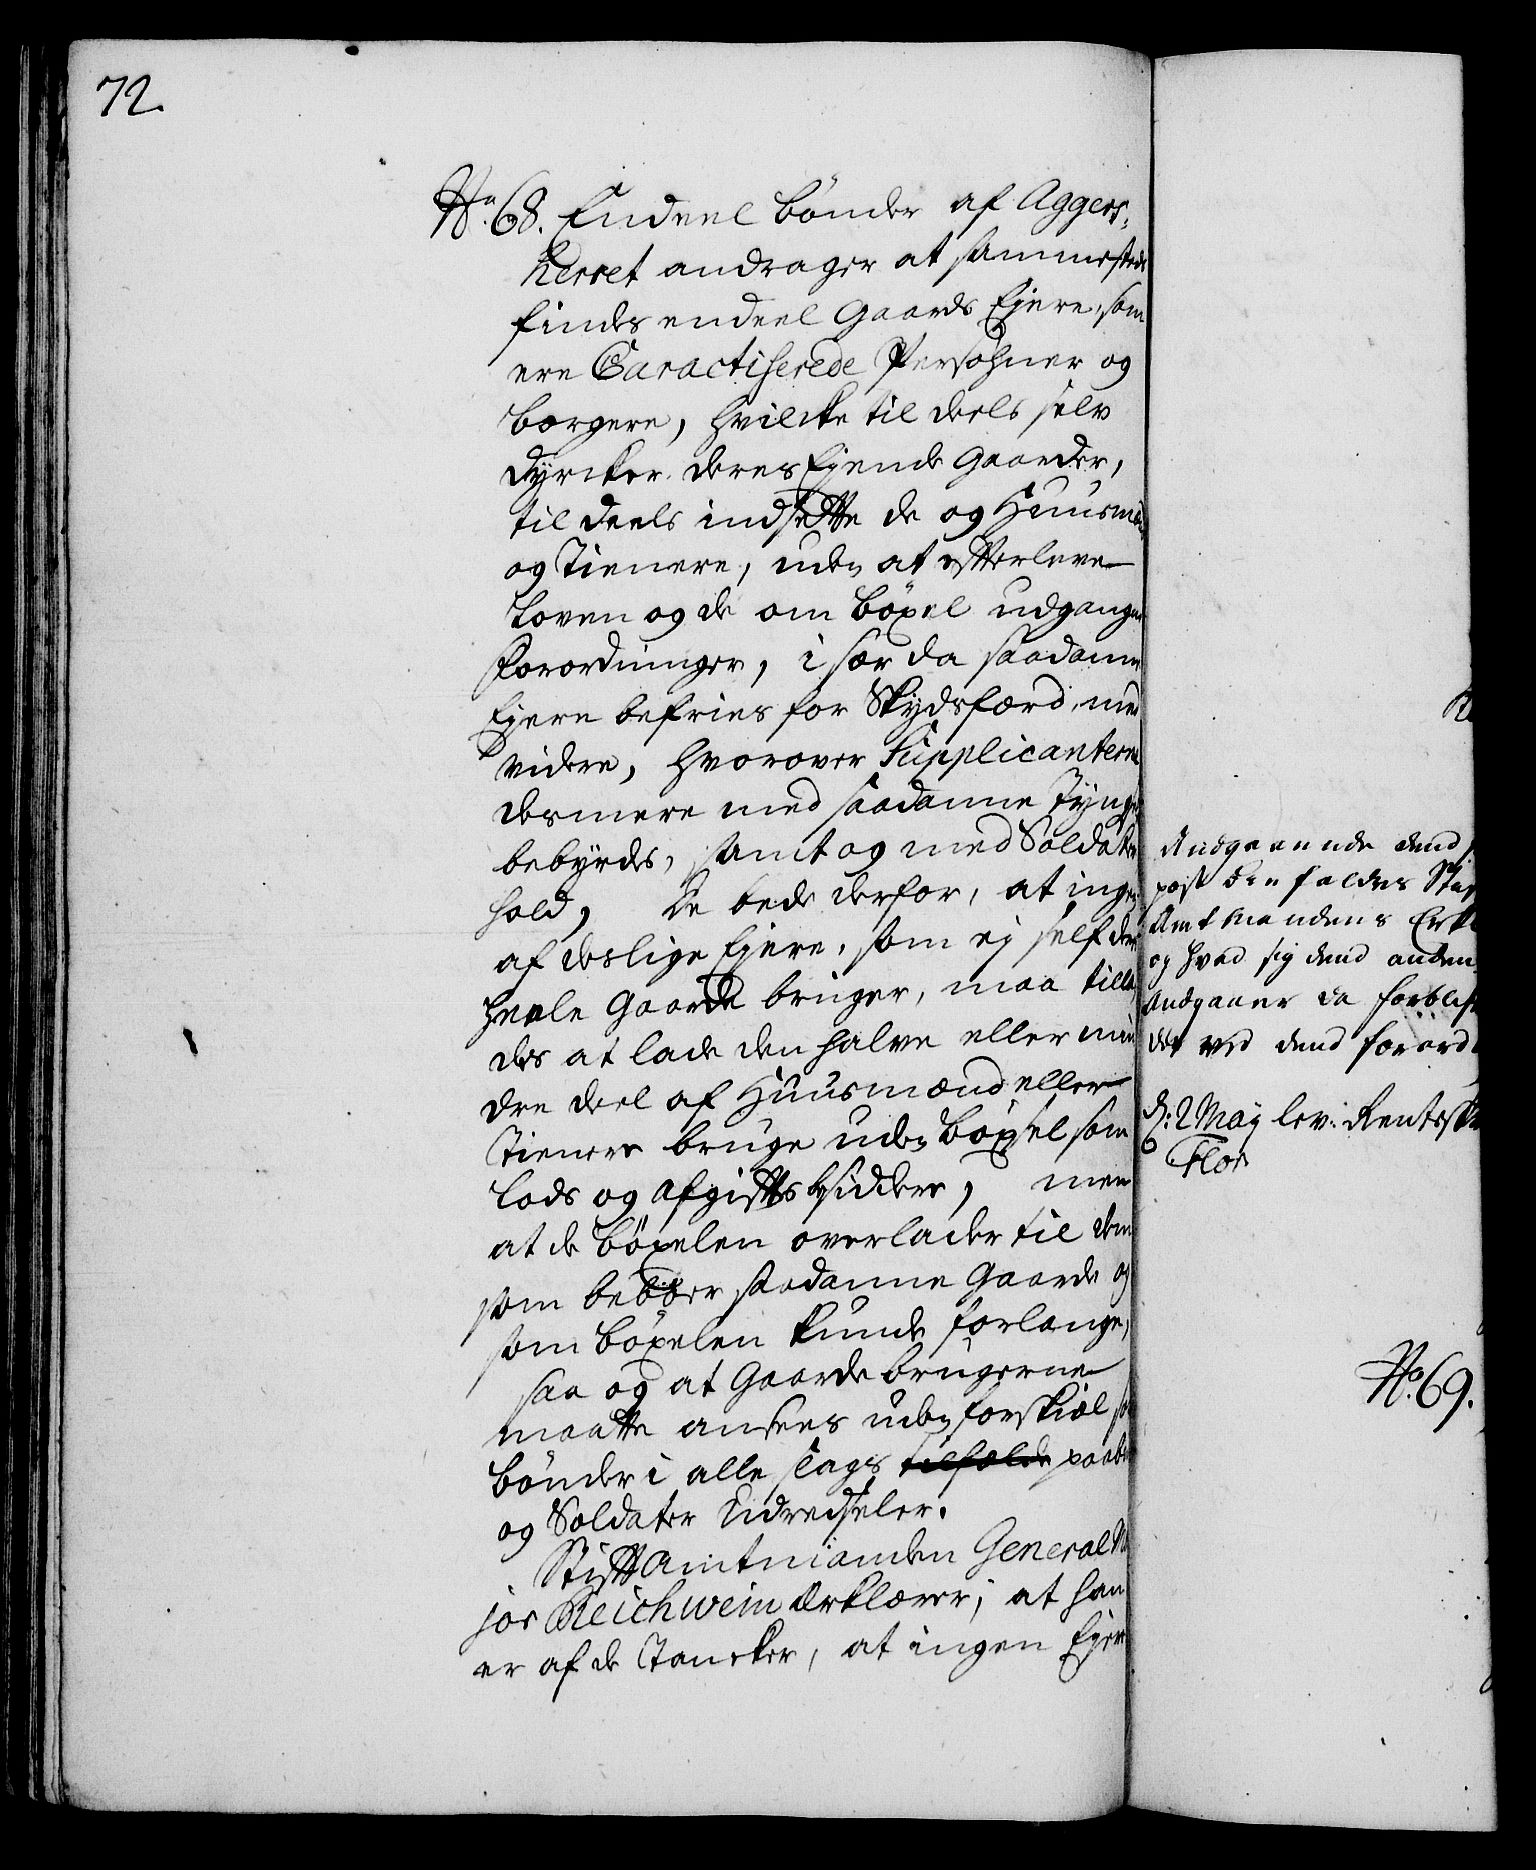 72.
No. 68. Endeel bönder af Aggers,
herret andrager at sammesteds
findes endeel Gaards Ejere, som
ere Caractiserede Persohner og
borgere, hvilcke til deels selv
dyrcker deres Ejende Gaarder,
til deels indsette de og Huusmænd
og Tienere, uden at efterleve
Loven og de om böxel udgangne
Forordninger, i sær da saadanne
Ejere befries for Skydsfærd, med
videre, hvorover Supplicanterne
desmere med saadanne Tynge
bebyrdes, samt og med Soldater
hold, De bede derfor, at ingen
af deslige Ejere, som ej self deres
heele Gaarde bruger, maa tilla,
des at lade den halve eller min
dre deel af Huusmænd eller
Tienere bruge uden böxsel som
lods og afgifts besiddere, men
at de böxelen overlader til dem
som beboer saadanne Gaarde og
som böxelen kunde forlange,
saa og at Gaarde brugerne
maatte ansees uden forskiæl som
bönder i alle slags tilfælde paabud
og Soldater Udredseler.
Stiftamtmanden General Ma
jor Reichwein erklærer, at han
er af de Tancker, at ingen Ejer
Andgaaende dend
post henfaldes
Amtmandens
og hvad sig dend anden
Andgaaer da forblif
det ved dend forord
d: 2 May lev: Rentesk
Flor
No. 69.